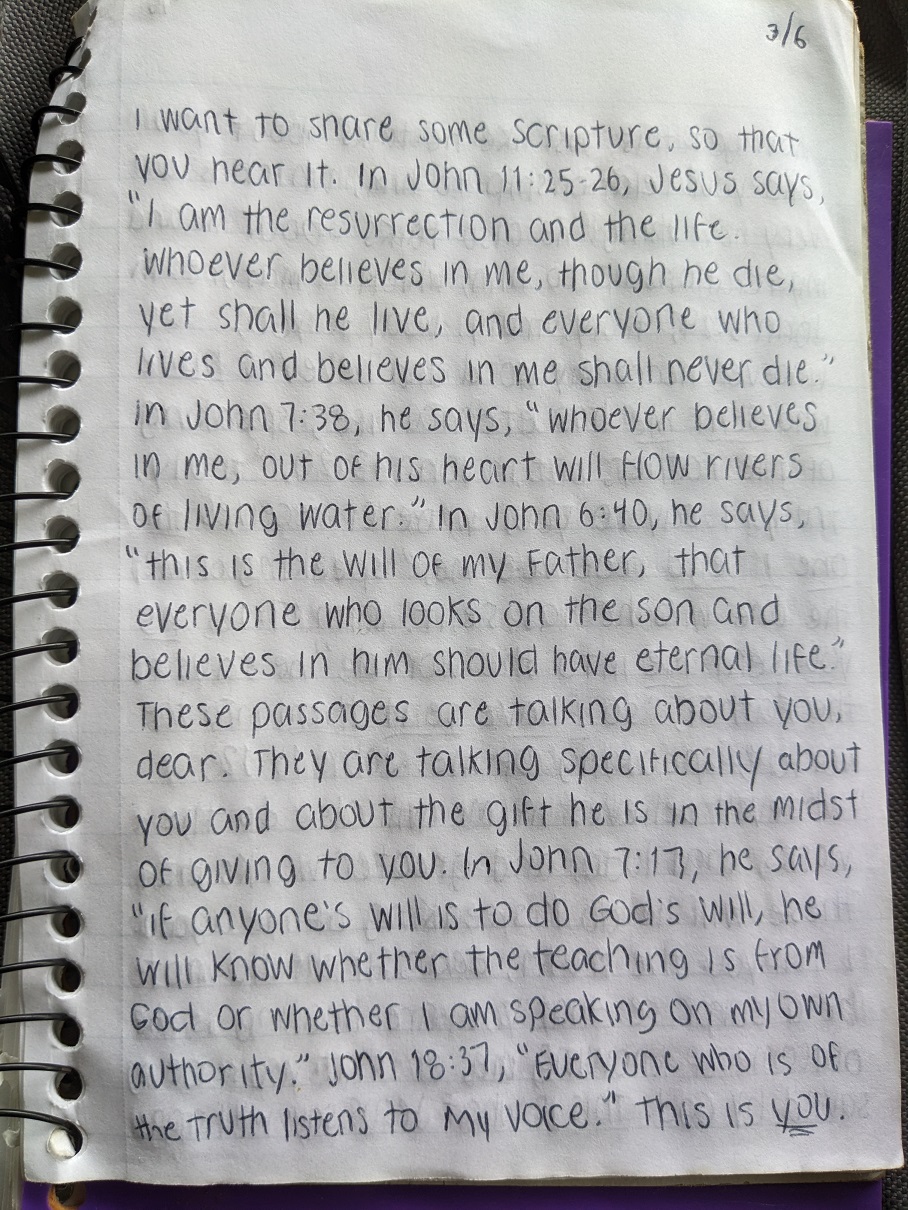 3/6
I want to share some scripture, so that
you hear it. In John 11:25-26, Jesus says,
"I am the resurrection and the life.
Whoever believes in me, though he die,
yet shall he live, and everyone who
lives and believes in me shall never die."
In John 7:38, he says, "whoever believes
in me, out of his heart will flow rivers
of living water." In John 6:40, he says,
"this is the will of my Father, that
everyone who looks on the son and
believes in him should have eternal life."
These passages are talking about you,
dear. They are talking specifically about
you and about the gift he is in the midst
of giving to you. In John 7:17, he says,
"if anyone's will is to do God's will, he
will know whether the teaching is from
God or whether I am speaking on my own
authority." John 18:37, "Everyone who is of
the truth listens to my voice." This is you.